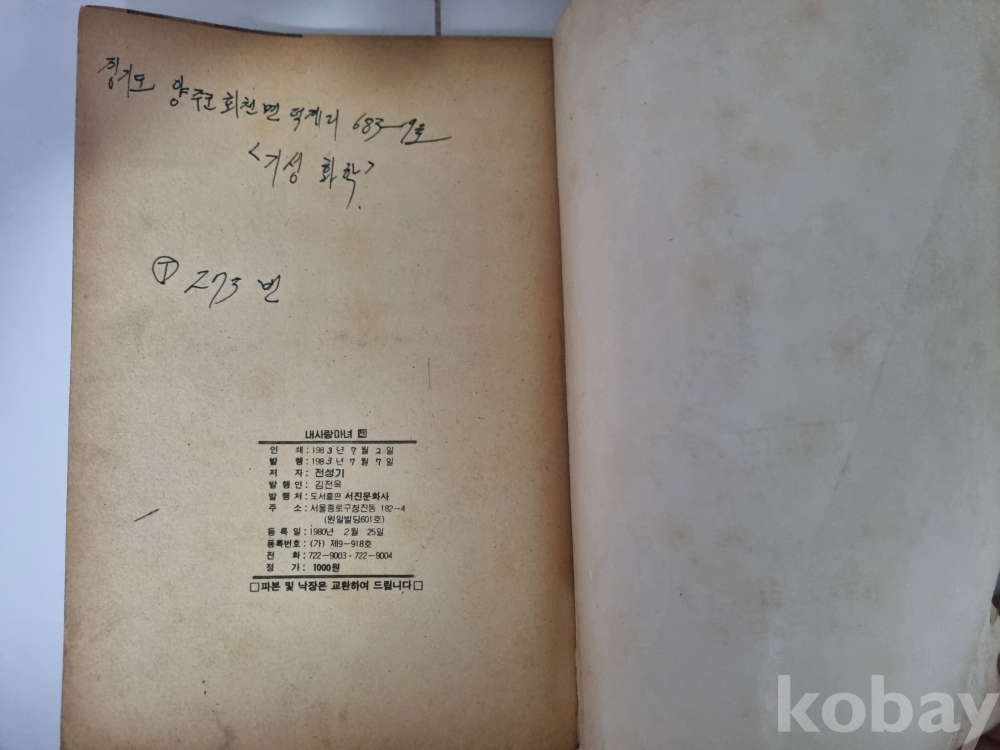 경기도 양주군 회천면 덕계리 683-9호
<거성 화학>
Ⓣ 273 번
내사랑마녀
인 쇄 : 1983년 7월 2일
발 행 : 1983년 7월 7일
저 자 : 전성기
발 행 인 : 김전옥
발 행 처 : 도서출판 서진문화사
주 소 : 서울종로구청진동 182-4
(원일빌딩601호)
등 록 일 : 1980년 2월 25일
등록번호 : (가) 제9-918호
전 화 : 722-9003·722-9004
정 가 : 1000원
□파본 및 낙장은 교환하여 드립니다□
kobay